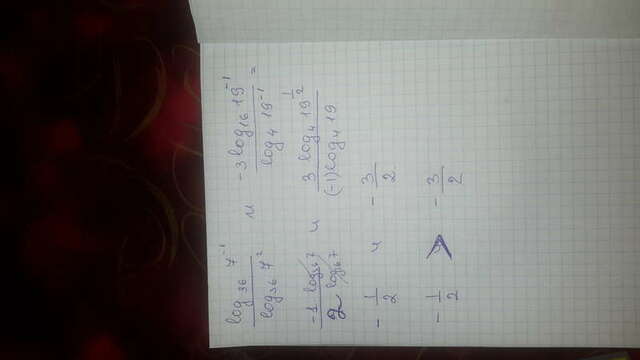 log₃₆ 7⁻¹ / log₃₆ 7² и -3 log₁₆ 19⁻¹ / log₄ 19⁻¹ =
-1 log₃₆ 7 / 2 log₃₆ 7 и 3 log₄ 19^(1/2) / (-1) log₄ 19
- 1/2 и - 3/2
- 1/2 > - 3/2